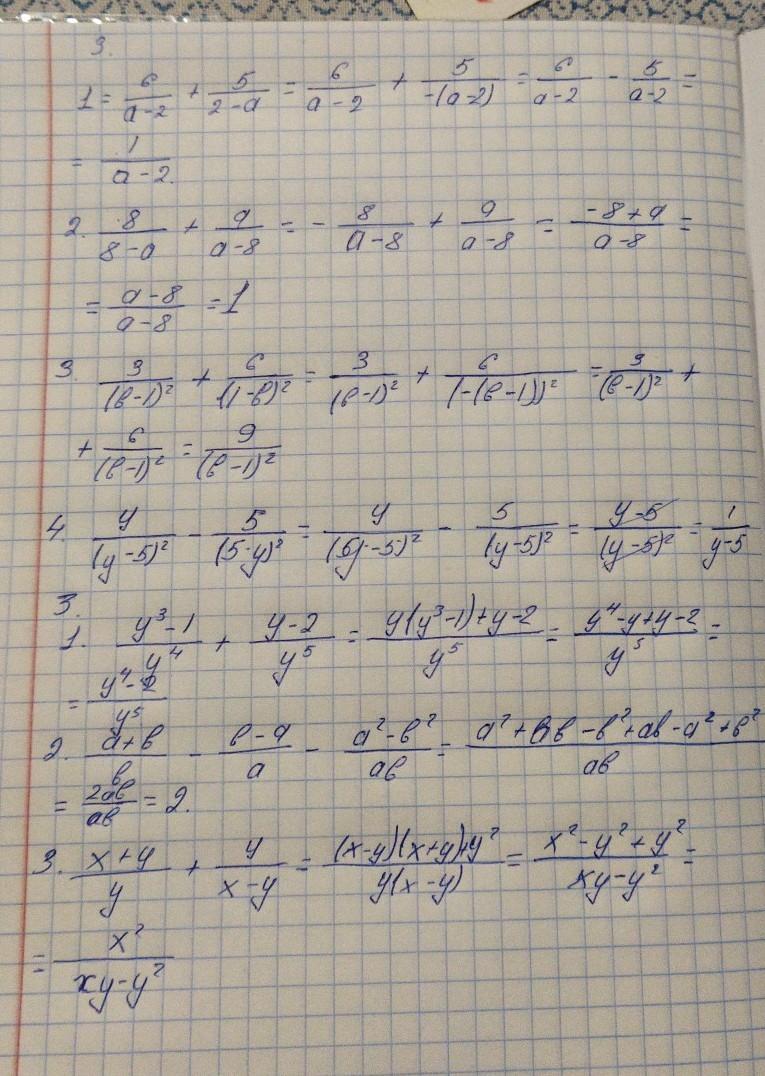 3.
1 = 6/(a-2) + 5/(2-a) = 6/(a-2) + 5/(-(a-2)) = 6/(a-2) - 5/(a-2) =
= 1/(a-2)
2. 8/(8-a) + a/(a-8) = - 8/(a-8) + a/(a-8) = (-8+a)/(a-8) =
= (a-8)/(a-8) = 1
3. 3/(в-1)² + 6/(1-в)² = 3/(в-1)² + 6/(-(в-1))² = 3/(в-1)² +
+ 6/(в-1)² = 9/(в-1)²
4. y/(y-5)² - 5/(5-y)² = y/(y-5)² - 5/(y-5)² = (y-5)/(y-5)² = 1/(y-5)
3.
1. (y³-1)/y⁴ + (y-2)/y⁵ = (y(y³-1)+y-2)/y⁵ = (y⁴-y+y-2)/y⁵ =
= (y⁴-2)/y⁵
2. (a+в)/в - (в-a)/a - (a²-в²)/aв = (a²+aв-в²+aв-a²+в²)/aв
= 2aв/aв = 2.
3. (x+y)/y + y/(x-y) = ((x-y)(x+y)+y²)/(y(x-y)) = (x²-y²+y²)/(xy-y²) =
= x²/(xy-y²)